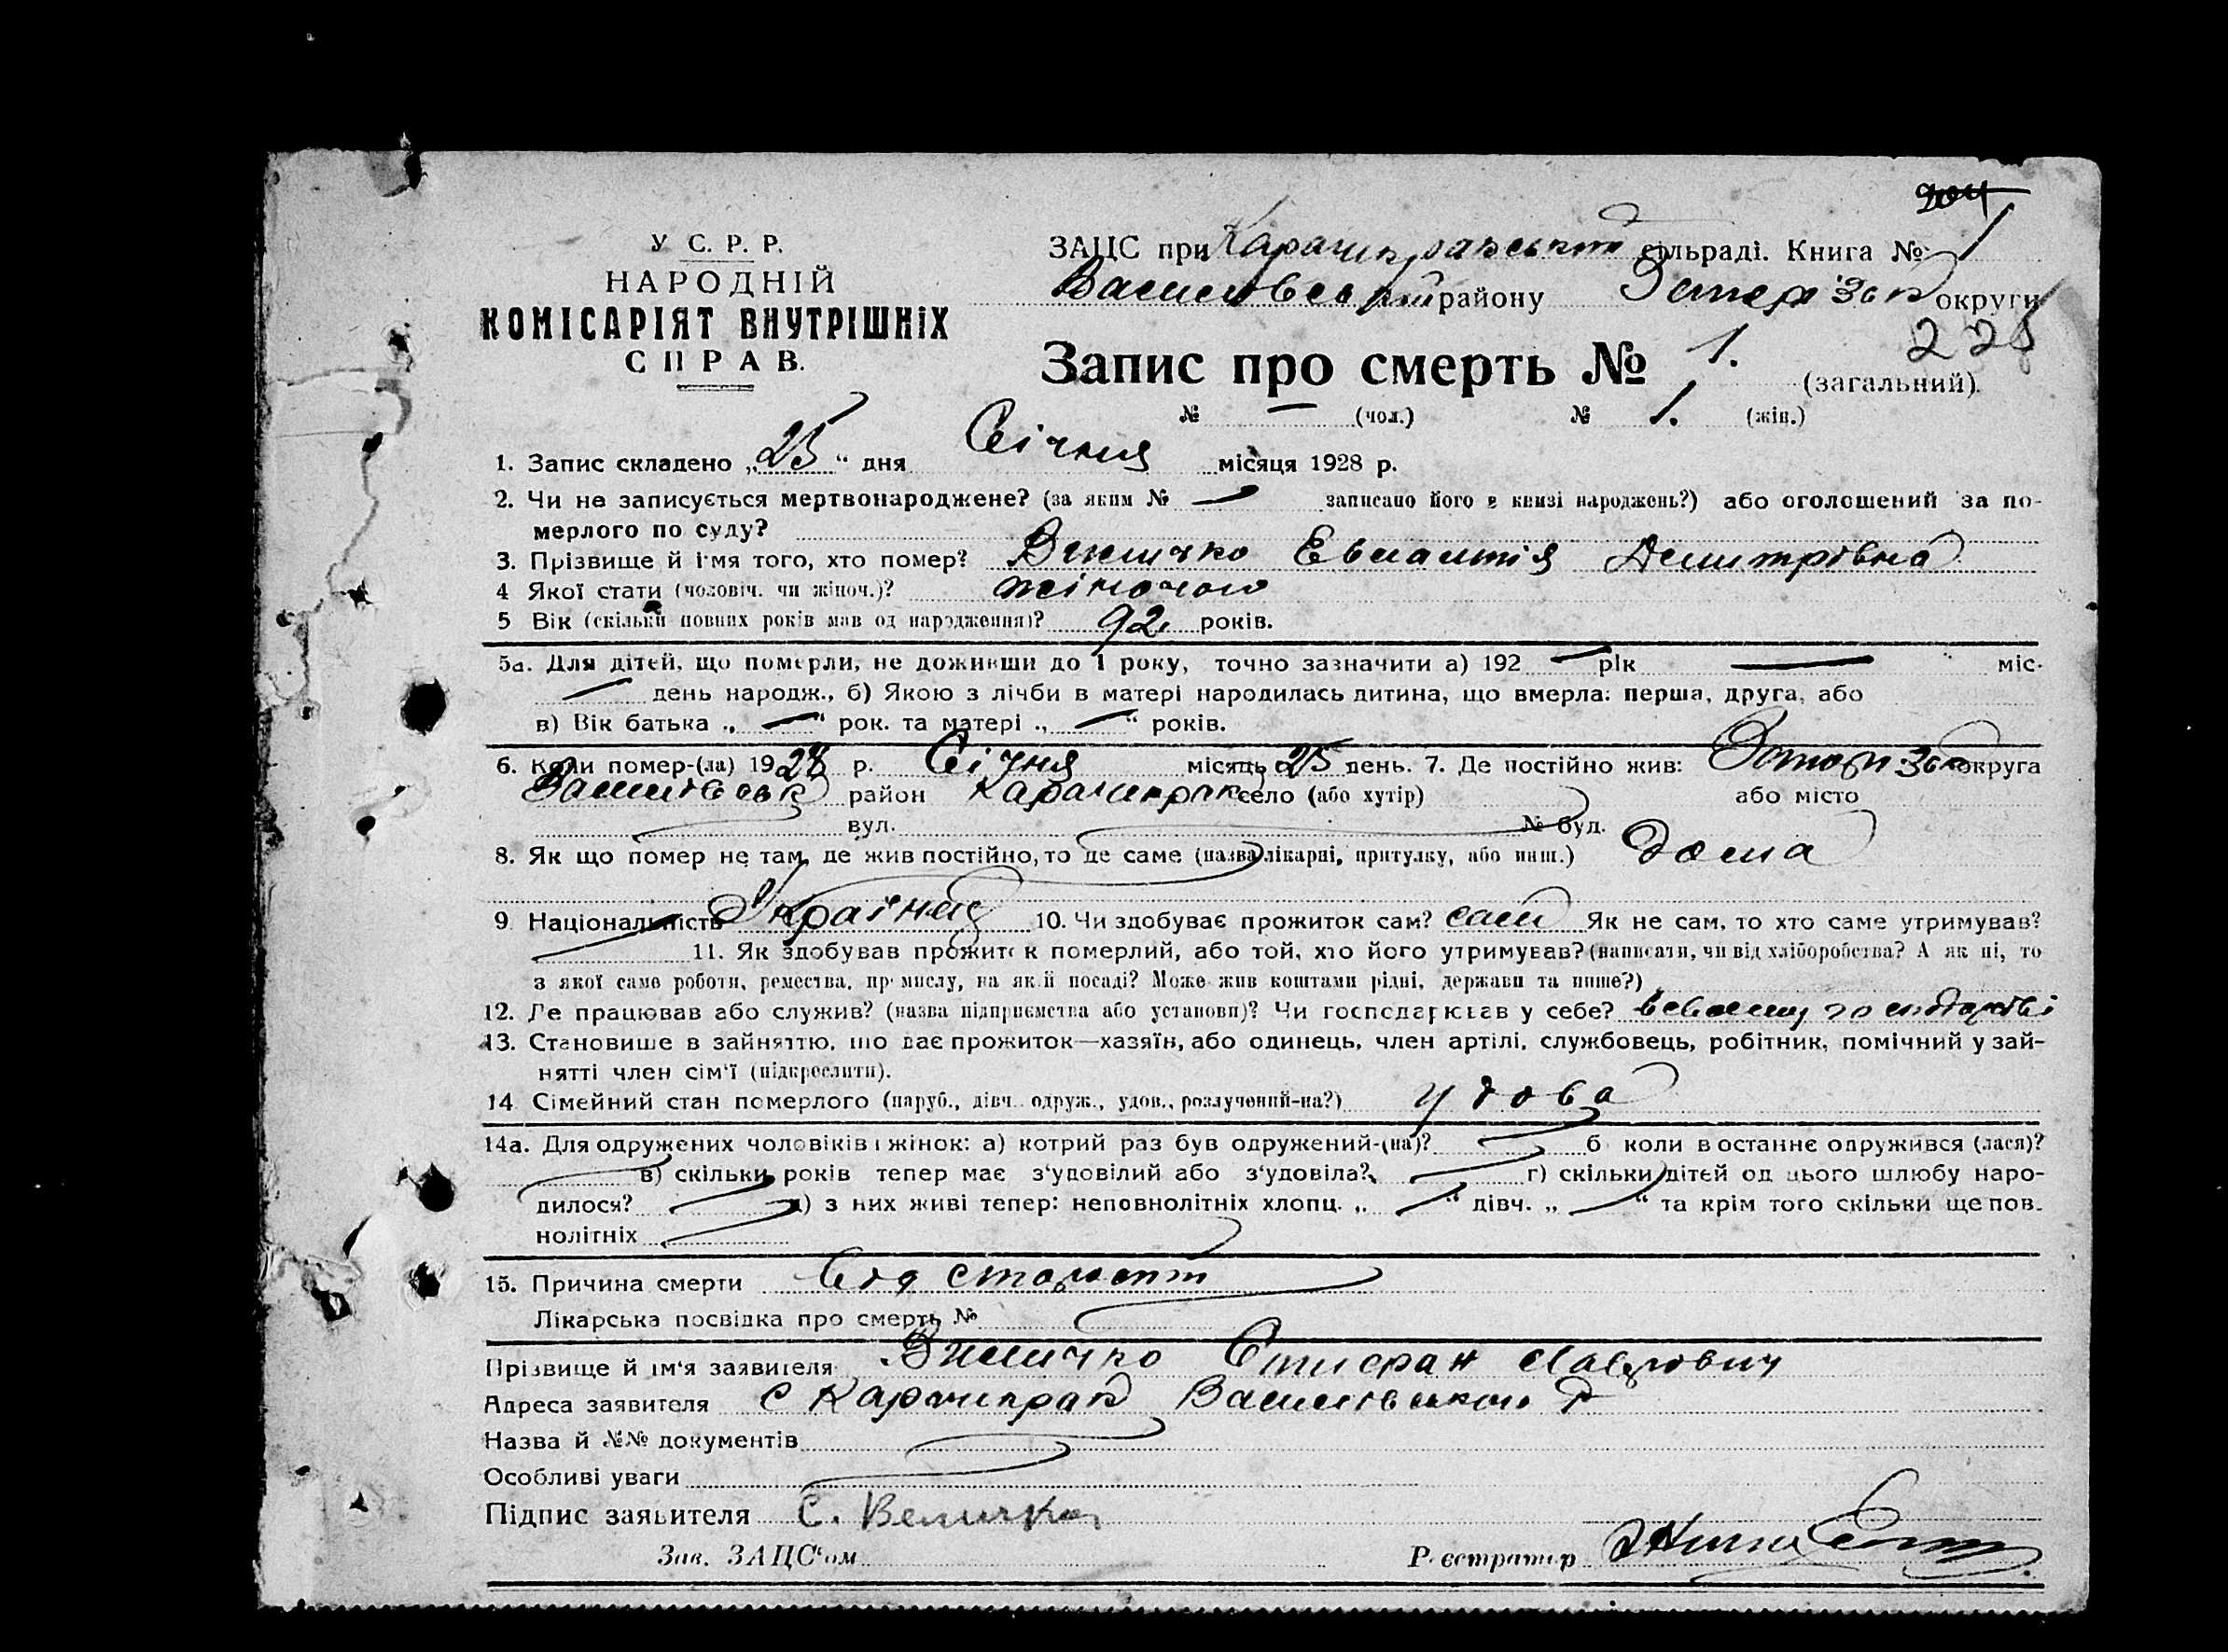 204
У С. Р. Р.
НАРОДНІЙ
КОМІСАРІЯТ ВНУТРІШНІХ
СПРАВ.
ЗАЦС при Карачикракській сільраді. Книга № 1
Василівськ району Запоріз округи
225
Запис про смерть № 1. (загальний).
№ — (чол.) № 1. (жін.)
1. Запис складено „25“ дня Січня місяця 1928 р.
2. Чи не записується мертвонароджене? (за яким № — записано його в книзі народжень?) або оголошений за по-
мерлого по суду?
3. Прізвище й і'мя того, хто помер? Величко Евлампія Демитрівна
4 Якої стати (чоловіч. чи жіноч.)? жіночою
5 Вік (скільки повних років мав од народження)? 92 років.
5а. Для дітей, що померли, не доживши до 1 року, точно зазначити а) 192 — рік — міс.
— день народж., б) Якою з лічби в матері народилась дитина, що вмерла: перша, друга, або
в) Вік батька „—“ рок. та матері „—“ років.
6. Коли помер-(ла) 1928 р. Січня місяць 25 день. 7. Де постійно жив: округа
Василівськ район Карачикрак село (або хутір) або місто
вул. № буд.
8. Як що помер не там, де жив постійно, то де саме (назва лікарні, притулку, або инш.) дома
9 Національність Українка 10. Чи здобуває прожиток сам? сам Як не сам, то хто саме утримував?
11. Як здобував прожиток померлий, або той, хто його утримував? (написати, чи від хліборобства? А як ні, то
з якої саме роботи, ремества, промислу, на якій посаді? Може жив коштами рідні, держави та инше?)
12. Де працював або служив? (назва підприємства або установи)? Чи господарював у себе? в своему господарстві
13. Становище в зайняттю, що дає прожиток—хазяїн, або одинець, член артілі, службовець, робітник, помічний у зай-
нятті член сім'ї (підкреслити).
14 Сімейний стан померлого (паруб., дівч. одруж., удов., розлучений-на?) удова
14а. Для одружених чоловіків і жінок: а) котрий раз був одружений-(на)? б) коли востаннє одружився (лася)?
в) скільки років тепер має з'удовілий або з'удовіла? г) скільки дітей од цього шлюбу наро-
дилося? д) з них живі тепер: неповнолітніх хлопц. „—“ дівч. „—“ та крім того скільки ще пов-
нолітніх
15. Причина смерти Від старости
Лікарська посвідка про смерть №
Прізвище й ім'я заявителя Величко Стифан Лаврович
Адреса заявителя с Карачикрак Василівського Р
Назва й №№ документів
Особливі уваги
Підпис заявителя С. Величко
Зав. ЗАЦС'ом Реєстратор